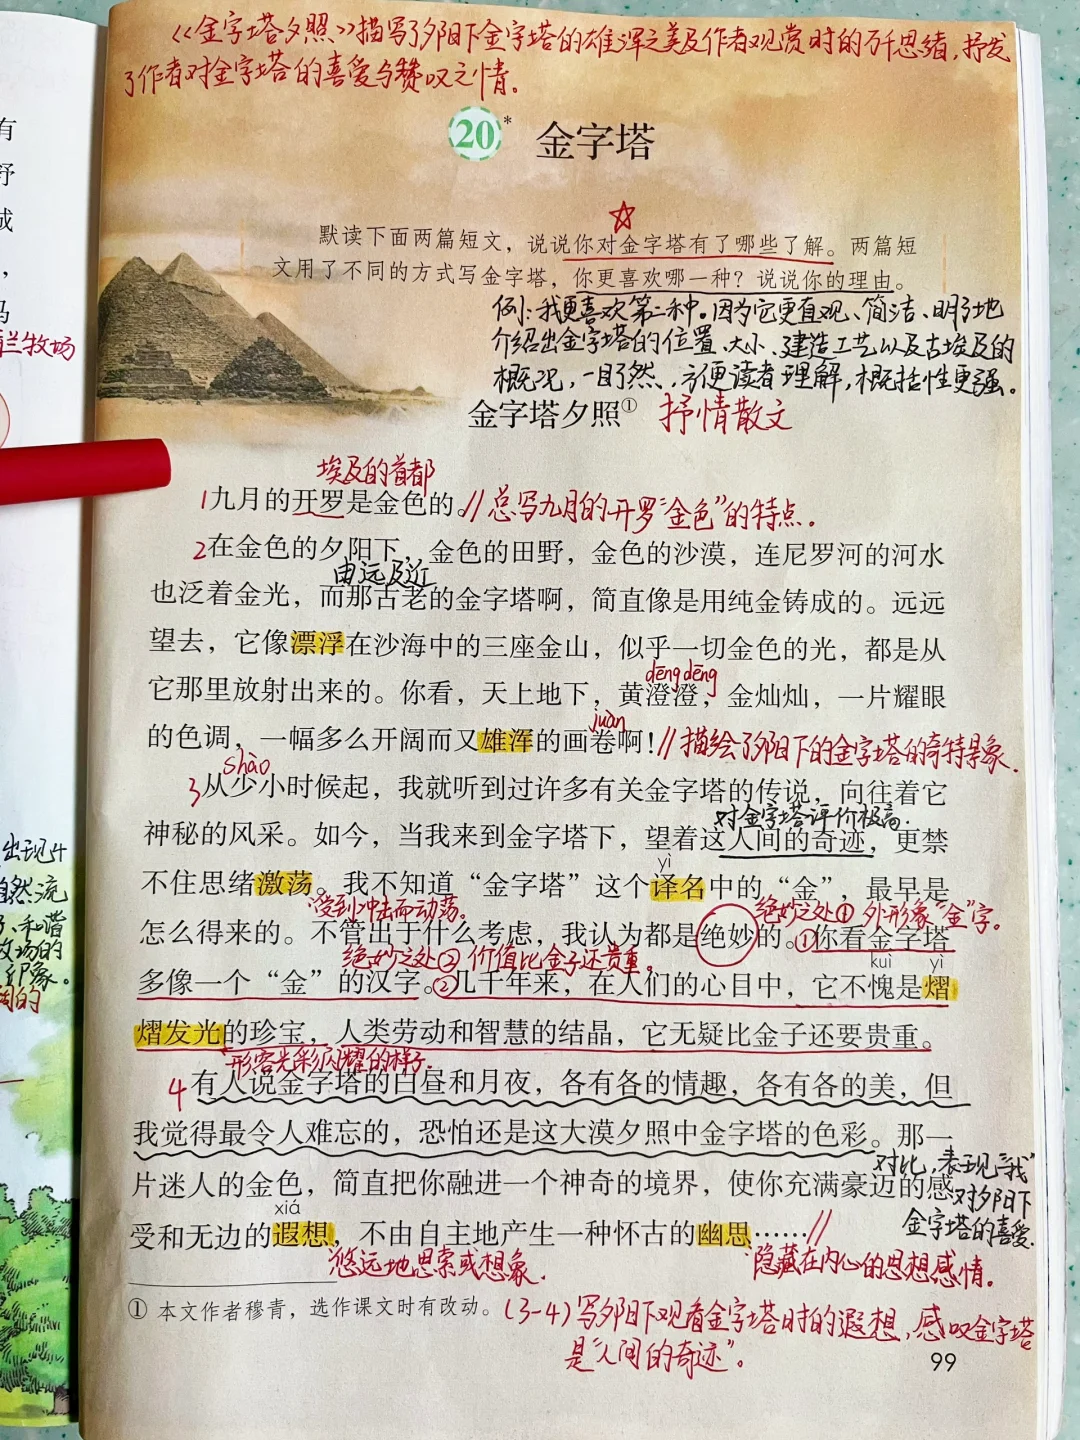 《金字塔夕照》描写了夕阳下金字塔的雄浑之美及作者观赏时的万千思绪,抒发
了作者对金字塔的喜爱与赞叹之情。
20* 金字塔
默读下面两篇短文,说说你对金字塔有了哪些了解。两篇短
文用了不同的方式写金字塔,你更喜欢哪一种?说说你的理由。
例:我更喜欢第二种。因为它更直观、简洁、明了地
介绍出金字塔的位置、大小、建造工艺以及古埃及的
概况,一目了然,方便读者理解,概括性更强。
金字塔夕照① 抒情散文
埃及的首都
1九月的开罗是金色的。//总写九月的开罗“金色”的特点。
2在金色的夕阳下,金色的田野,金色的沙漠,连尼罗河的河水
由远及近
也泛着金光,而那古老的金字塔啊,简直像是用纯金铸成的。远远
望去,它像漂浮在沙海中的三座金山,似乎一切金色的光,都是从
dēng dēng
它那里放射出来的。你看,天上地下,黄澄澄,金灿灿,一片耀眼
juàn
的色调,一幅多么开阔而又雄浑的画卷啊!//描绘了夕阳下的金字塔的奇特景象.
shào
3从少小时候起,我就听到过许多有关金字塔的传说,向往着它
对金字塔评价极高.
神秘的风采。如今,当我来到金字塔下,望着这人间的奇迹,更禁
yì
不住思绪激荡。我不知道“金字塔”这个译名中的“金”,最早是
受到冲击而动荡。 绝妙之处① 外形象“金”字。
怎么得来的。不管出于什么考虑,我认为都是绝妙的。①你看金字塔
绝妙之处② 价值比金子还贵重。 kuì yì
多像一个“金”的汉字。②几千年来,在人们的心目中,它不愧是熠
熠发光的珍宝,人类劳动和智慧的结晶,它无疑比金子还要贵重。
形容光彩闪耀的样子.
4有人说金字塔的白昼和月夜,各有各的情趣,各有各的美,但
我觉得最令人难忘的,恐怕还是这大漠夕照中金字塔的色彩。那一
对比,表现“我”
片迷人的金色,简直把你融进一个神奇的境界,使你充满豪迈的感
对夕阳下
xiá
金字塔的喜爱.
受和无边的遐想,不由自主地产生一种怀古的幽思……//
悠远地思索或想象. 隐藏在内心的思想感情。
① 本文作者穆青,选作课文时有改动。
(3-4)写夕阳下观看金字塔时的遐想,感叹金字塔
是“人间的奇迹”。
99
有
野
成
,
马
兰牧场
出现
自然流
、和谐
牧场的
印象。
的